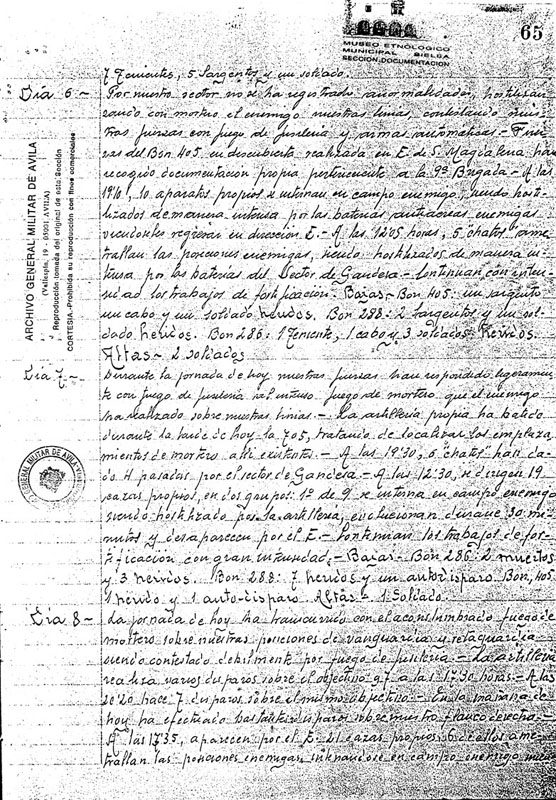 MUSEO ETNOLÓGICO
MUNICIPAL BIELSA
SECCIÓN DOCUMENTACIÓN
65
ARCHIVO GENERAL MILITAR DE AVILA
(Vallespín, 19 - 05001 AVILA)
Reproducción tomada del original de esta Sección
CORTESIA-Prohibida su reproducción con fines comerciales
7 Tenientes, 5 Sargentos y un soldado.
Día 6 - Por nuestro sector no se ha registrado anormalidades, hostilizan
do con mortero el enemigo nuestras lineas, contestando nues
tras fuerzas con fuego de fusileria y armas automáticas. - Fuer
zas del Bon 405 en descubierta realizada en E. de S. Magdalena han
recogido documentación propia perteneciente a la 9ª Brigada. - A las
10 aparatos propios se internan en campo enemigo, siendo hosti
lizados de manera intensa por las baterias antiaéreas enemigas
regresar en dirección E. - A las 12'05 horas, 5 "chatos" ame
trallan las posiciones enemigas, siendo hostilizados de manera in
tensa por las baterias del Sector de Gandesa. - Continuan con inten
sidad los trabajos de fortificación. Bajas - Bon 405: un sargento
un cabo y un soldado heridos. Bon 288: 2 sargentos y un sol
dado heridos. Bon 286: 1 Teniente, 1 cabo y 3 soldados heridos.
Altas - 2 soldados
Día 7 - Durante la jornada de hoy nuestras fuerzas han respondido ligeramen
te con fuego de fusileria al intenso fuego de mortero que el enemigo
ha realizado sobre nuestras lineas. - La artilleria propia ha batido
durante la tarde de hoy la 705, tratando de localizar los emplaza
mientos de mortero alli existentes. - A las 12'30, 6 "chatos" han da
do 4 pasadas por el sector de Gandesa. - A las 12'30, se dirigen 19
cazas propios, en dos grupos: 1º de 9 se interna en campo enemigo
siendo hostilizado por la artilleria, evolucionan durante 30 mi
nutos y desaparecen por el E. - Continuan los trabajos de for
tificación con gran intensidad. - Bajas - Bon 286: 2 muertos
y 3 heridos. Bon 288: 7 heridos y un autodisparo. Bon. 405
1 herido y 1 auto-disparo. Altas - 1 Soldado.
Día 8 - La jornada de hoy ha transcurrido con el acostumbrado fuego de
mortero sobre nuestras posiciones de vanguardia y retaguardia
siendo contestado debilmente por fuego de fusileria. - La artilleria
realiza varios disparos sobre el objectivo 97 a las 17'30 horas. - A las
20'20 hace 7 disparos sobre el mismo objectivo. - En la mañana de
hoy ha efectuado bastantes disparos sobre nuestro flanco derecho. -
A las 17'35, aparecen por el E. 21 cazas propios, 6 de ellos ame
trallan las posiciones enemigas, internandose en campo enemigo